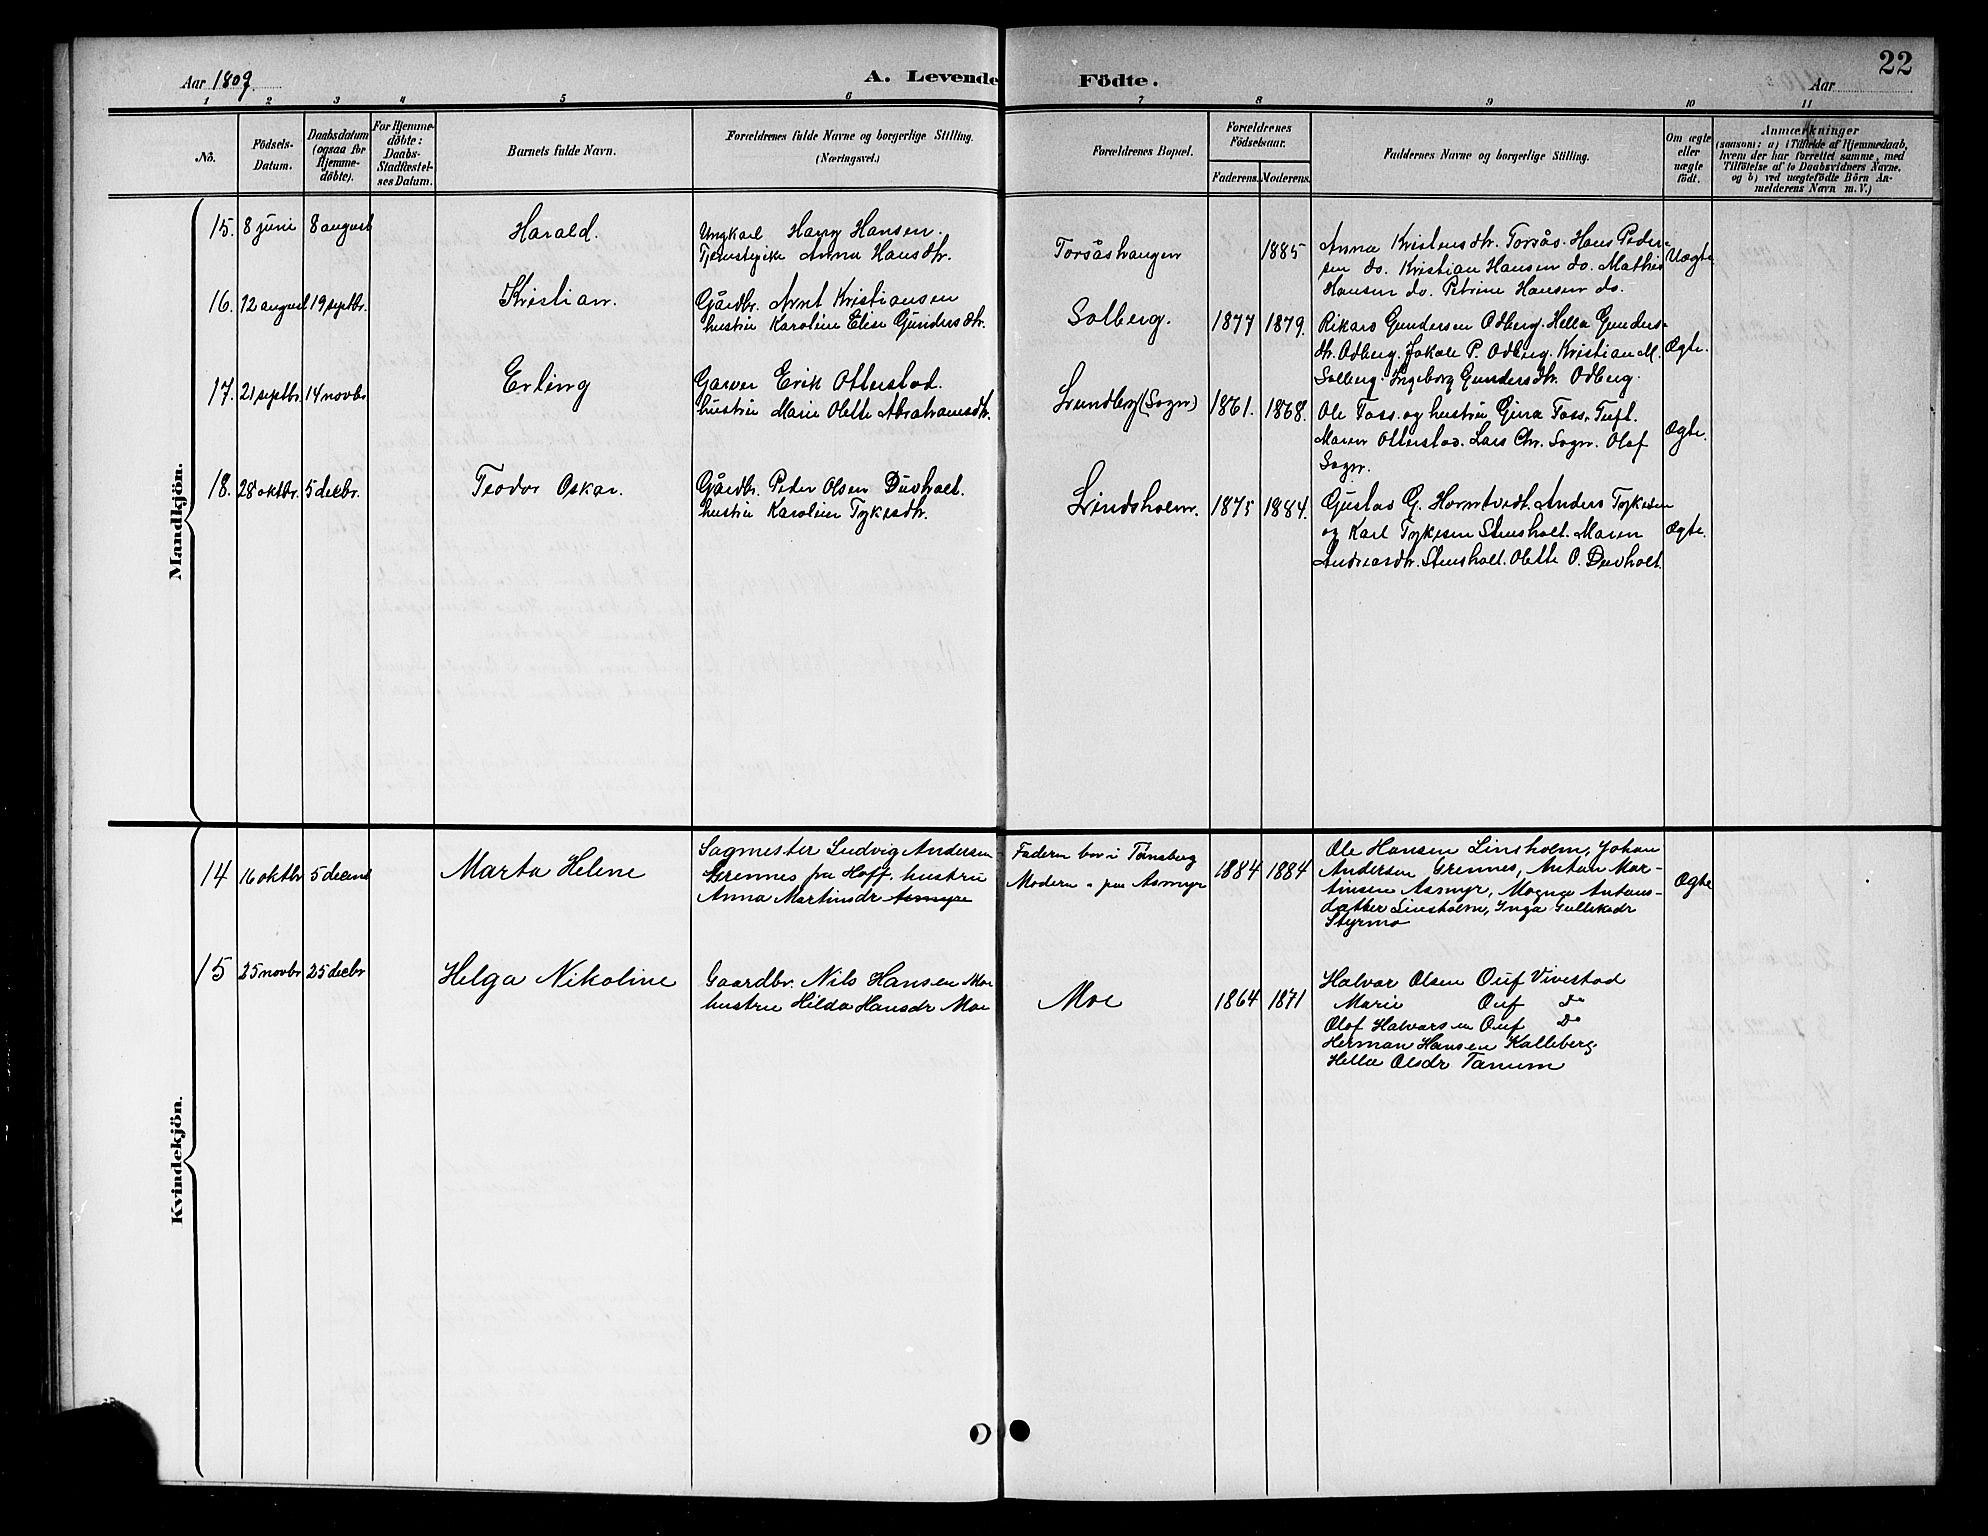 22
Aar 1809.
A. Levende Födte.
Aar
1 2 3 4 5 6 7 8 9 10 11
No.
Födsels-
Datum.
Daabsdatum
(ogsaa for
Hjemme-
döbte).
For Hjemme-
döbte:
Daabs-
Stadfæstel-
ses Datum.
Barnets fulde Navn.
Forældrenes fulde Navne og borgerlige Stilling.
(Næringsvei.)
Forældrenes Bopæl.
Forældrenes
Födselsaar.
Faderens. Moderens.
Faddernes Navne og borgerlige Stilling.
Om ægte
eller
uægte
födt.
Anmærkninger
(saasom: a) i Tilfælde af Hjemmedaab,
hvem der har forrettet samme, med
Tilföielse af to Daabsvidners Navne,
og b) ved uægtefödte Börn An-
melderens Navn m. V.)
Mandkjön.
15. 8 juni 8 august Harald.
Ungkarl Harry Hansen.
Tjenestepike Anna Hansdtr.
Torsåshaugen 1885
Anna Kristensdtr. Torsås. Hans Peder-
sen do. Kristian Hansen do. Mathis
Hansen do. Petrine Hansen do.
Uægte
16. 12 august 19 septbr. Kristian.
Gårdbr. Arnt Kristiansen
hustru Karoline Elise Gundersdtr.
Solberg. 1877 1879.
Rikard Gundersen Odberg. Hella Gunders-
dtr. Odberg. Jakob P. Odberg. Kristian M.
Solberg. Ingeborg Gundersdtr. Odberg.
Ægte.
17. 21 septbr. 14 novbr Erling
Garver Erik Otterstad.
hustru Marie Olette Abrahamsdtr.
Lundberg (Sogn) 1861. 1868.
Ole Foss. og hustru Gina Foss, Tuft.
Maren Otterstad. Lars Chr. Sogn. Olaf
Sogn.
Ægte.
18. 28 oktbr. 5 decbr. Teodor Oskar.
Gårdbr. Peder Olsen Duvholt.
hustru Karoline Tykesdtr.
Lindsholm. 1875 1884.
Gustav G. Horntvedt. Anders Tykesen
og Karl Tykesen Stensholt. Maren
Andreasdtr. Stensholt. Olette O. Duvholt.
Ægte.
Kvindekjön.
14 16 oktbr 5 decmb Marta Helene
Sagmester Ludvig Andersen
Grennes fra Hoff. hustru
Anna Martinsdr Aasmyr
Faderen bor i Tønsberg
Moderen " paa Aasmyr
1884 1884
Ole Hansen Linsholm, Johan
Andersen Grennes, Anton Mar-
tinsen Aasmyr, Magna Antons-
datter Linsholm, Inga Gullikadr
Styrmo
Ægte
15 25 novbr 25 decbr Helga Nikoline
Gaardbr. Nils Hansen Moe
hustru Hilda Hansdr Moe
Moe 1864 1871
Halvar Olsen Ouf Vivestad
Marie Ouf do
Olaf Halvarsen Ouf Do
Herman Hansen Kalleberg
Hella Olsdr Tanum